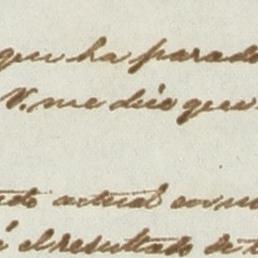 que ha parado
V. me dice que
actual
el resultado de